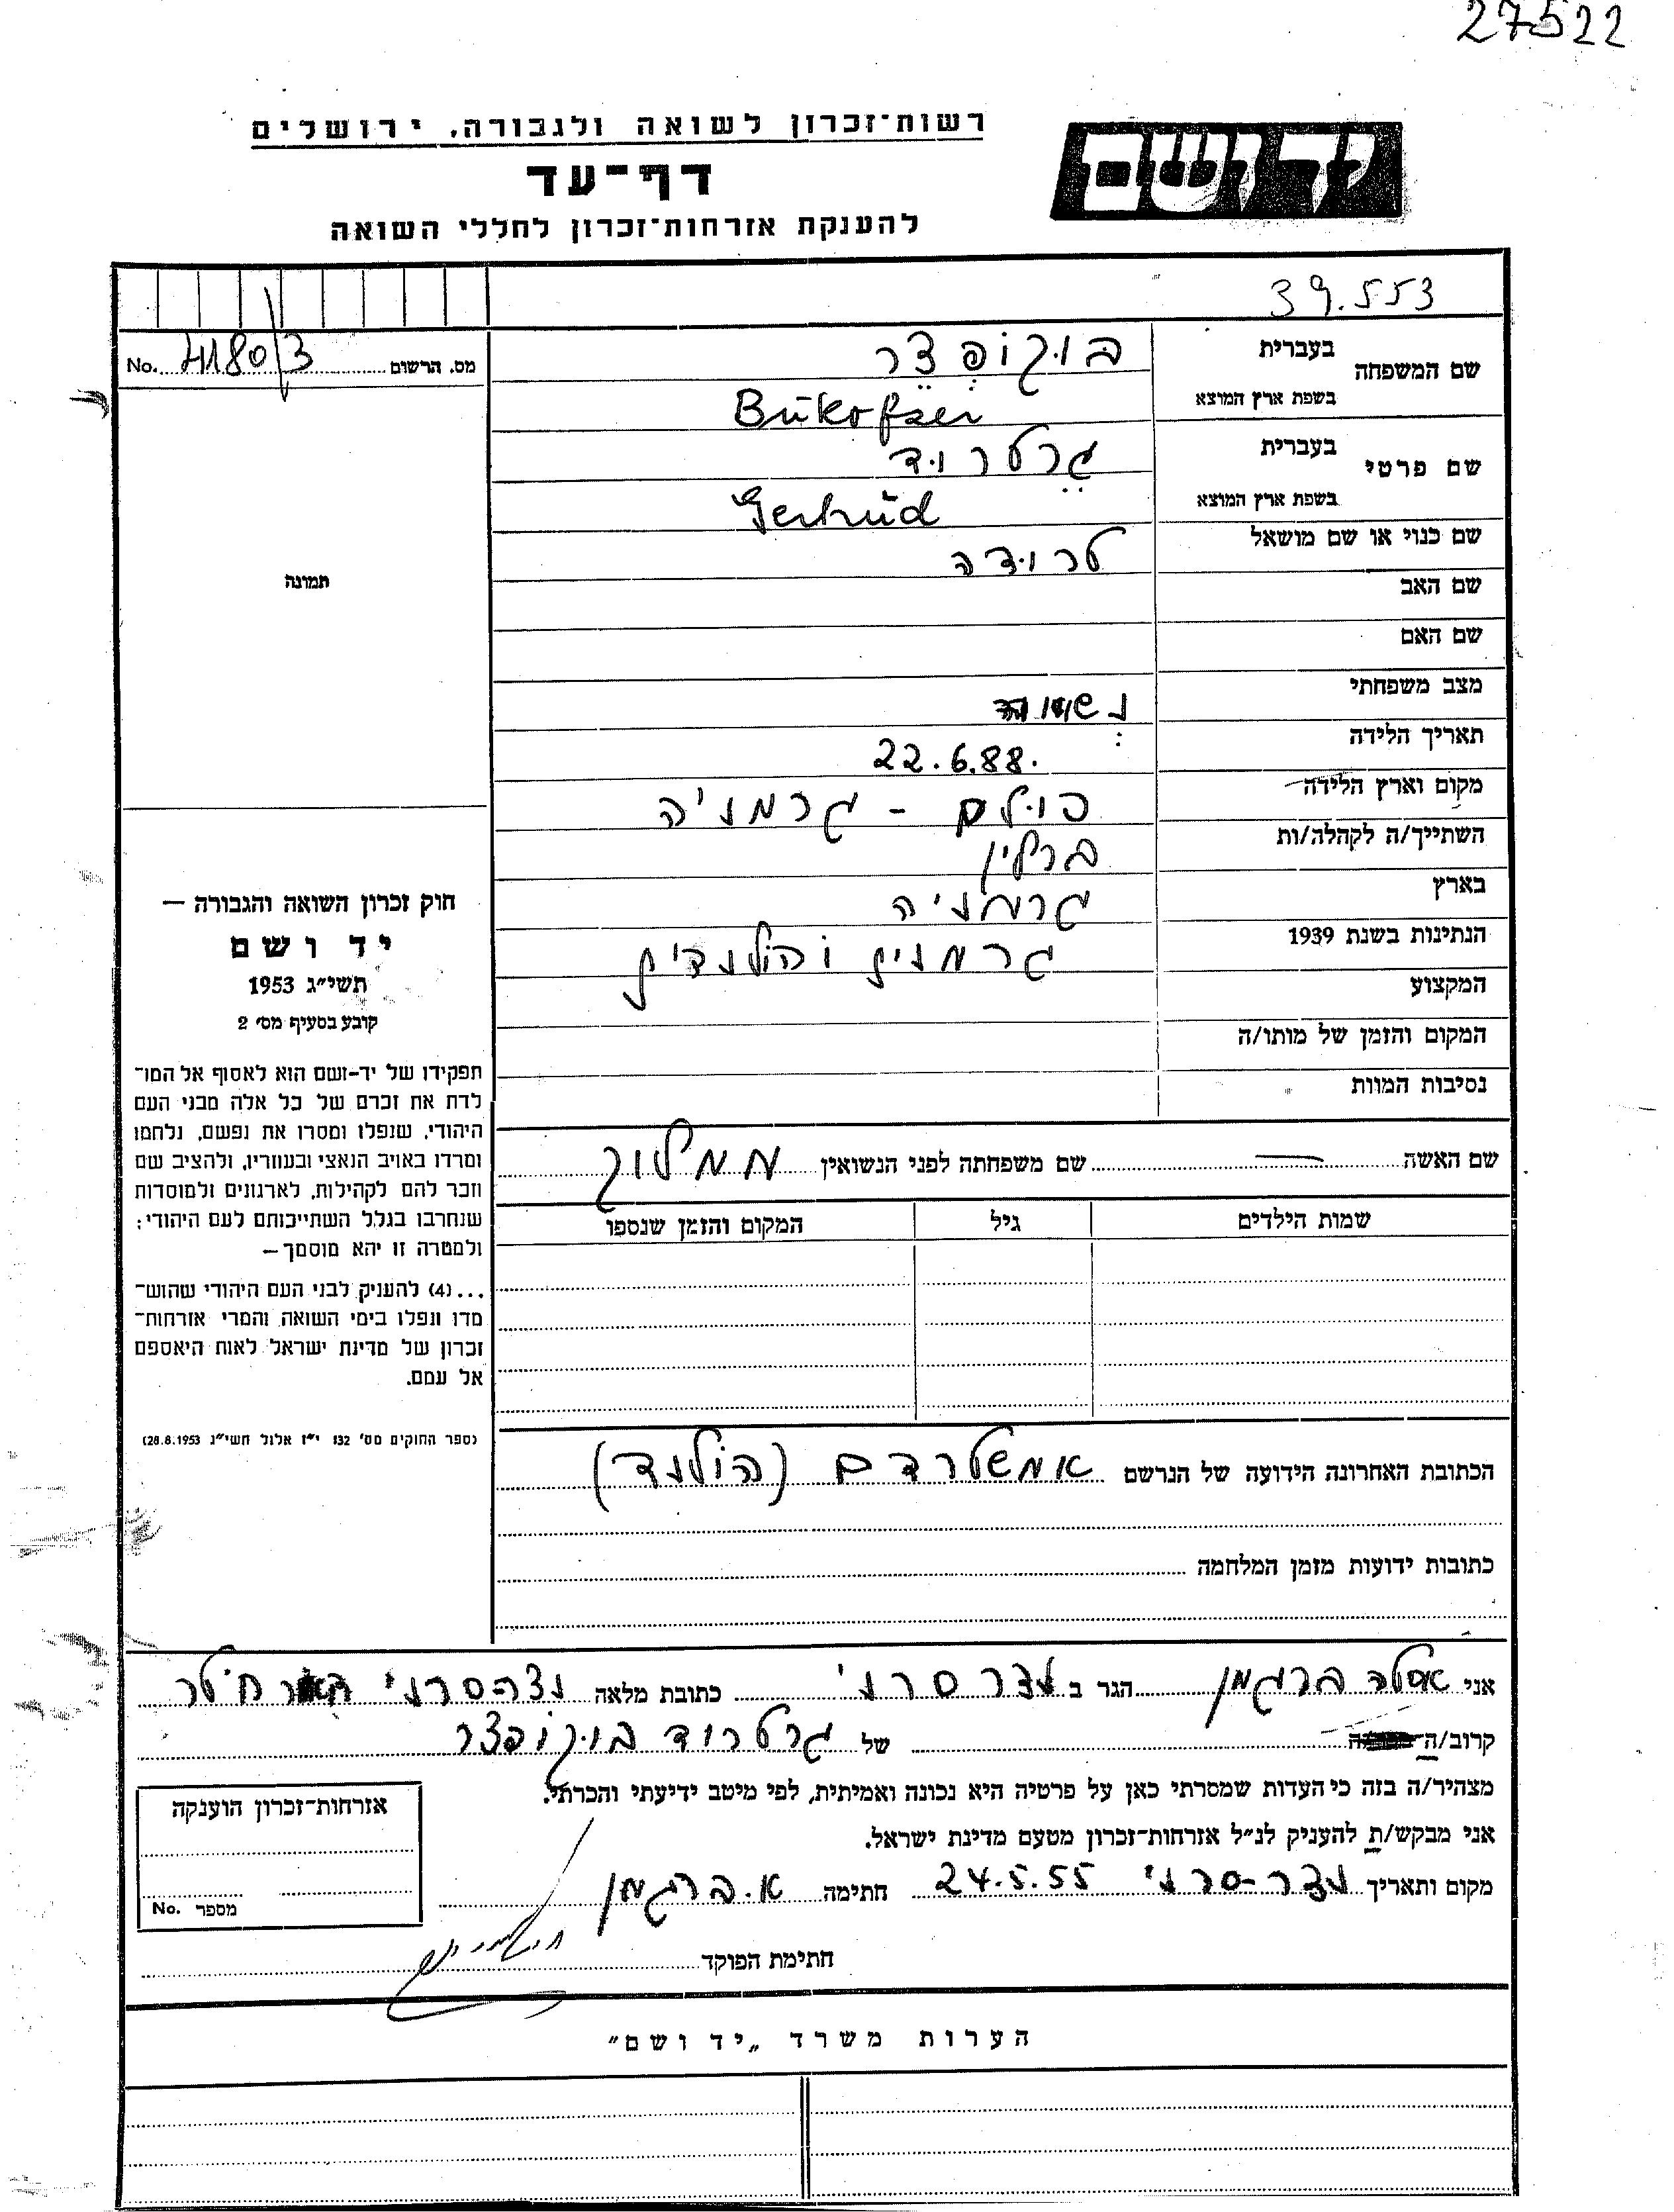 27522
יד ושם
רשות־זכרון לשואה ולגבורה, ירושלים
דף־עד
להענקת אזרחות־זכרון לחללי השואה
39.553
מס. הרשום No.
שם המשפחה
בעברית בוּקוֹפְצֵר
בשפת ארץ המוצא Bukofzer
שם פרטי
בעברית גֵרטרוּד
בשפת ארץ המוצא Gertrud
שם כנוי או שם מושאל טרוּדה
שם האב
שם האם
מצב משפחתי
תאריך הלידה 22.6.88.
מקום וארץ הלידה גרמניה
השתייך/ה לקהלה/ות ברלין
בארץ גרמניה
הנתינות בשנת 1939 גרמנית והולנדית
המקצוע
המקום והזמן של מותו/ה
נסיבות המוות
תמונה
חוק זכרון השואה והגבורה —
יד ושם
תשי״ג 1953
קובע בסעיף מס׳ 2
תפקידו של יד-ושם הוא לאסוף אל המו־
לדת את זכרם של כל אלה מבני העם
היהודי, שנפלו ומסרו את נפשם, נלחמו
ומרדו באויב הנאצי ובעוזריו, ולהציב שם
וזכר להם לקהילות, לארגונים ולמוסדות
שנחרבו בגלל השתייכותם לעם היהודי;
ולמטרה זו יהא מוסמך—
...(4) להעניק לבני העם היהודי שהוש־
מדו ונפלו בימי השואה והמרי אזרחות־
זכרון של מדינת ישראל לאות היאספם
אל עמם.
(ספר החוקים מס׳ 132 י״ז אלול תשי״ג 28.8.1953)
שם האשה — שם משפחתה לפני הנשואין ממלוק
שמות הילדים גיל המקום והזמן שנספו
הכתובת האחרונה הידועה של הנרשם אמשטרדם (הולנד)
כתובות ידועות מזמן המלחמה
אני ברגמן הגר ב נצר סרני כתובת מלאה נצר-סרני
קרוב/ה של גרטרוד בוּקוֹפצר
מצהיר/ה בזה כי העדות שמסרתי כאן על פרטיה היא נכונה ואמיתית, לפי מיטב ידיעתי והכרתי.
אני מבקש/ת להעניק לנ״ל אזרחות־זכרון מטעם מדינת ישראל.
מקום ותאריך נצר-סרני 24.5.55 חתימה א. ברגמן
אזרחות־זכרון הוענקה
מספר No.
חתימת הפוקד
הערות משרד „יד ושם״